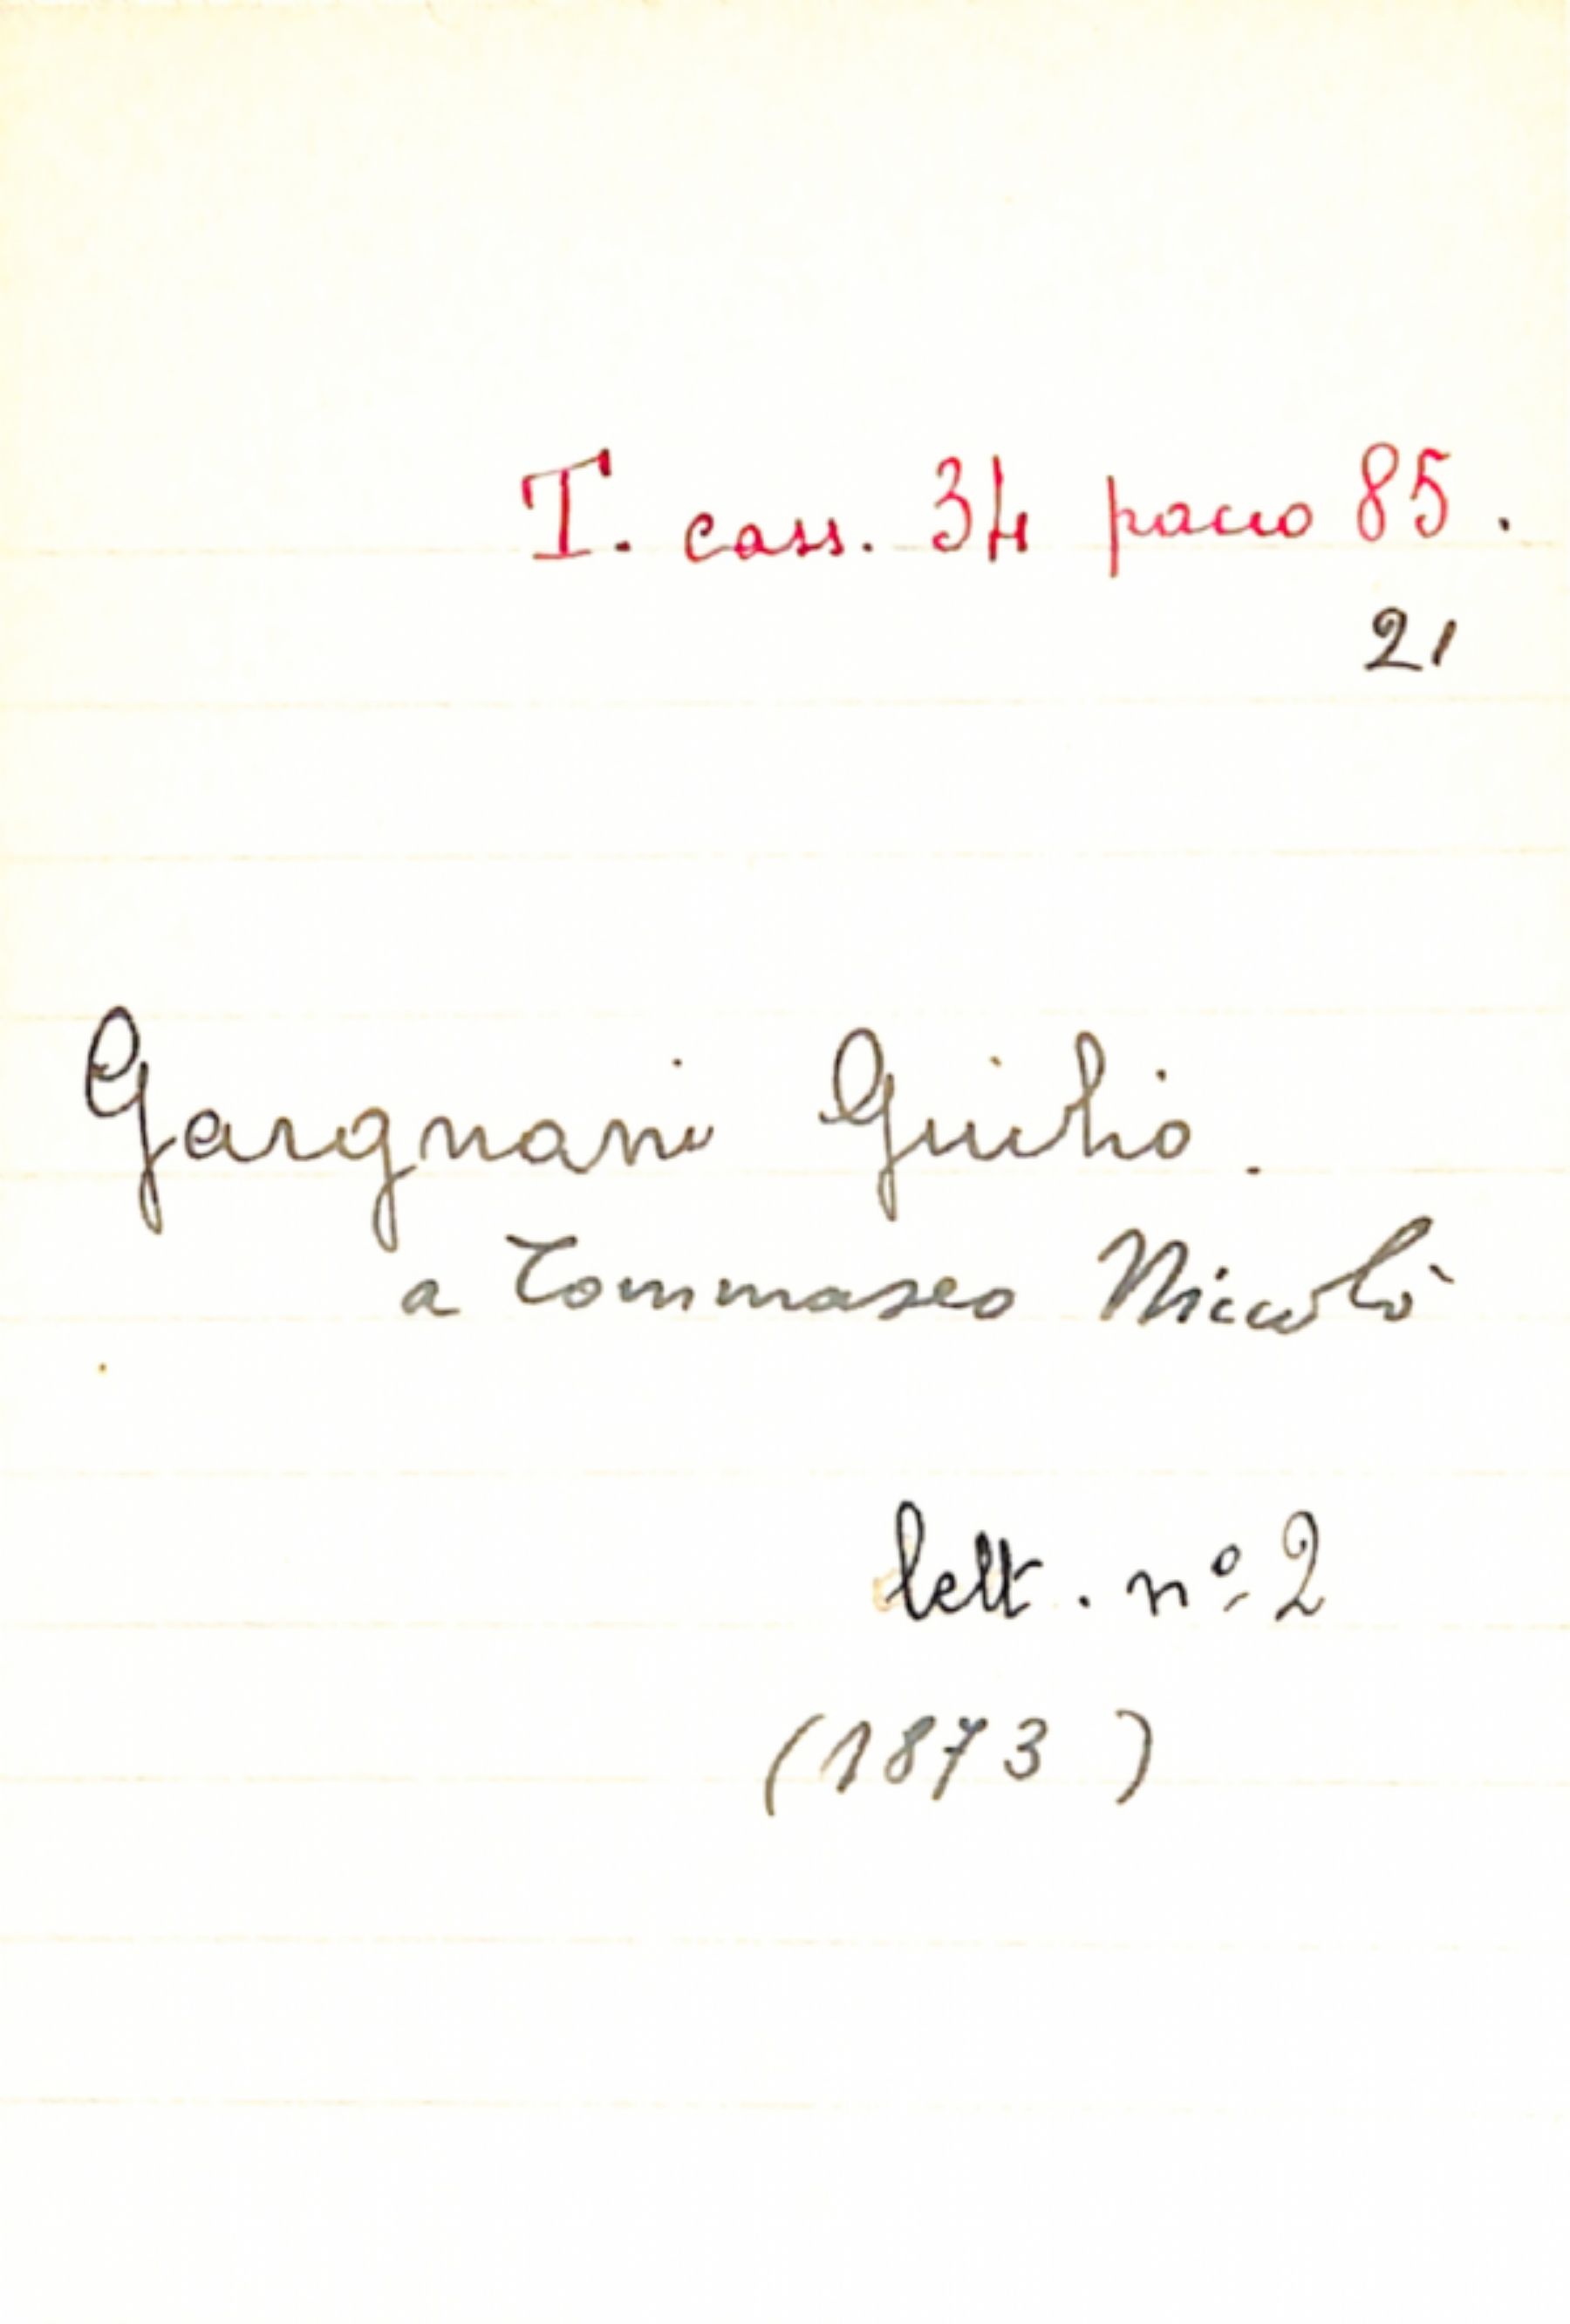 T. cass. 34 pacco 85.
21
Gargnani Giulio.
a Tommaseo Niccolò
lett. nº 2
(1873)